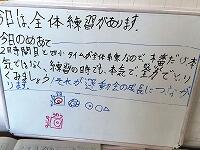 今日は、全体練習があります。
今日のめあて
2時間目と四小タイムが全体練習なので 本番だけ本
気ではなく、練習の時でも、本気で、全力でとり
くみましょう！それが運動会の成長につながり
ます。